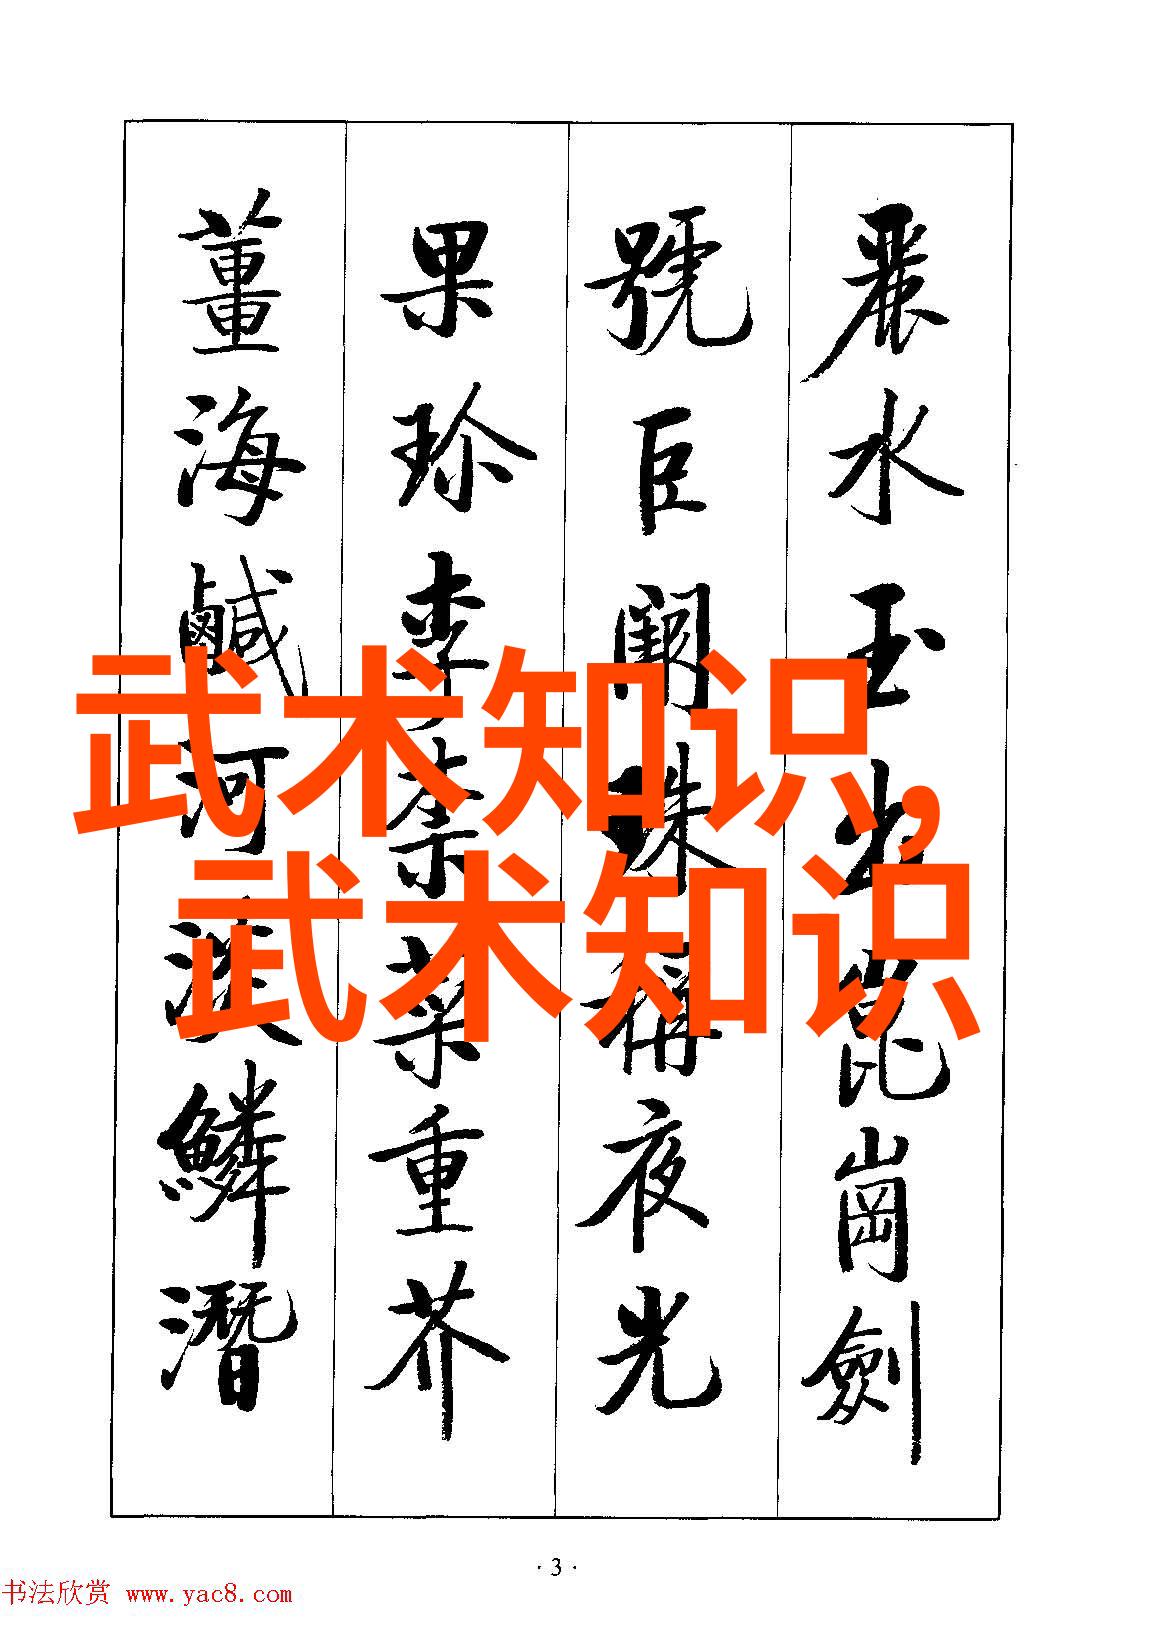 麗水玉出崑崗劍
號巨闕珠稱夜光
果珍李柰菜重芥
薑海鹹河淡鱗潛
武术知识,
武术知识
· 3 ·
书法欣赏 www.yac8.com